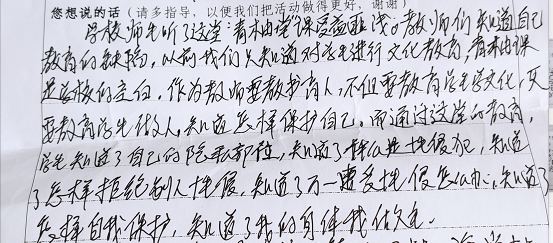 您想说的话（请多指导，以便我们把活动做得更好，谢谢）
学校师生听了这堂青柚课受益匪浅。教师们知道自己
教育的缺陷，以前我们只知道对学生进行文化教育，青柚课
是学校的空白，作为教师要教书育人，不但要教育学生学文化，更
要教育学生做人，知道怎样保护自己。而通过这堂的教育，
学生知道了自己的隐私部位，知道了什么是性侵犯，知道
了怎样拒绝别人性侵，知道了万一遭受性侵怎么办，知道了
怎样自我保护，知道了我的身体我做主。